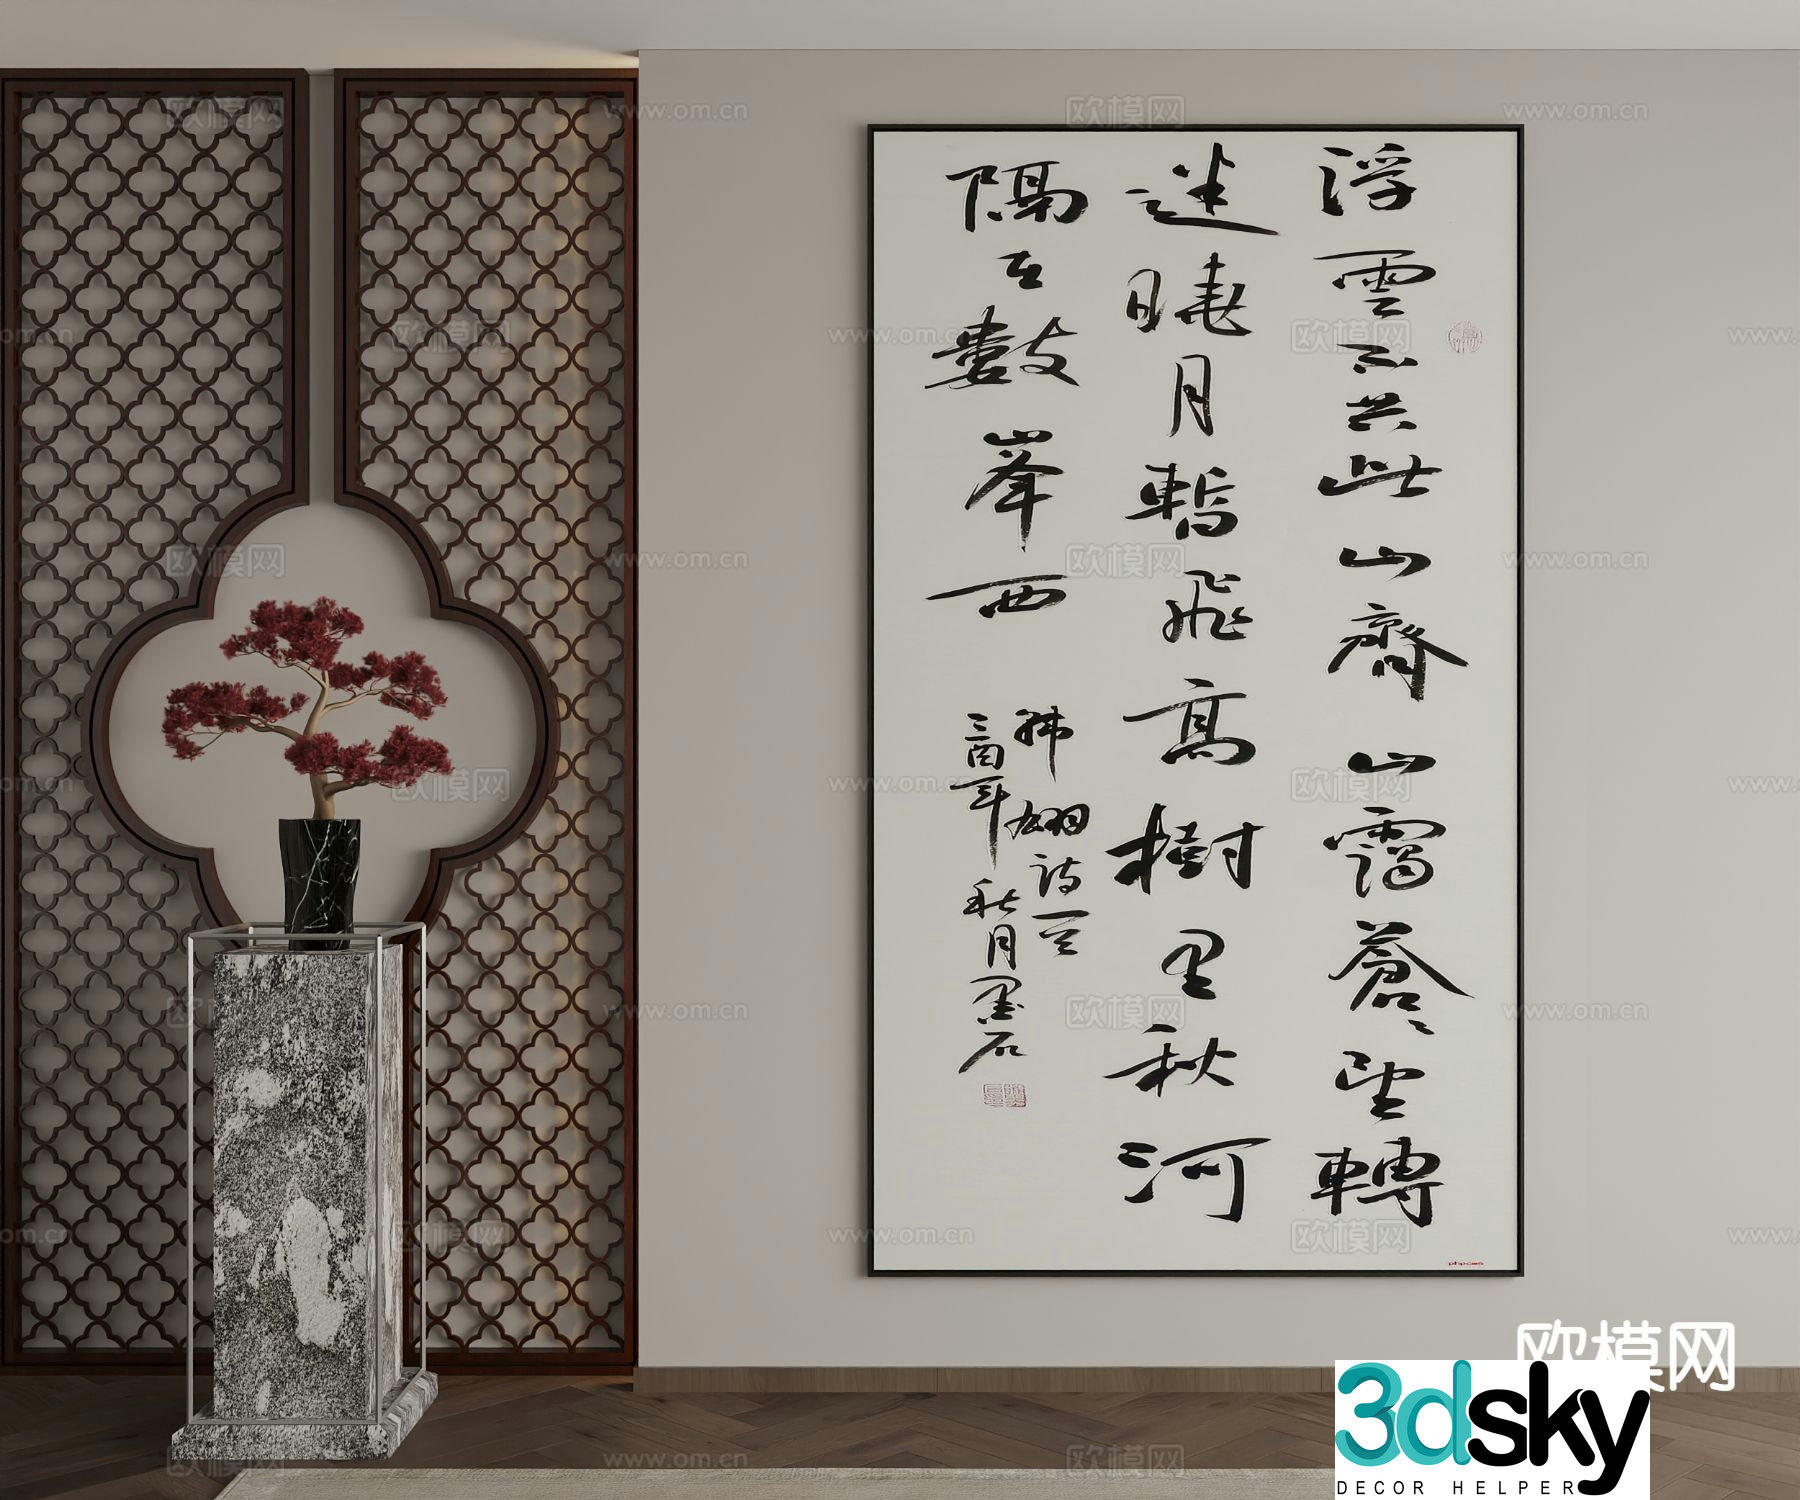 浮雲不共此山齊山靄蒼〻望轉
迷曉月暫飛高樹里秋河
隔在數峯西
韩翃诗一首
酉年秋月墨石
欧模网
www.om.cn
3dsky
DECOR HELPER